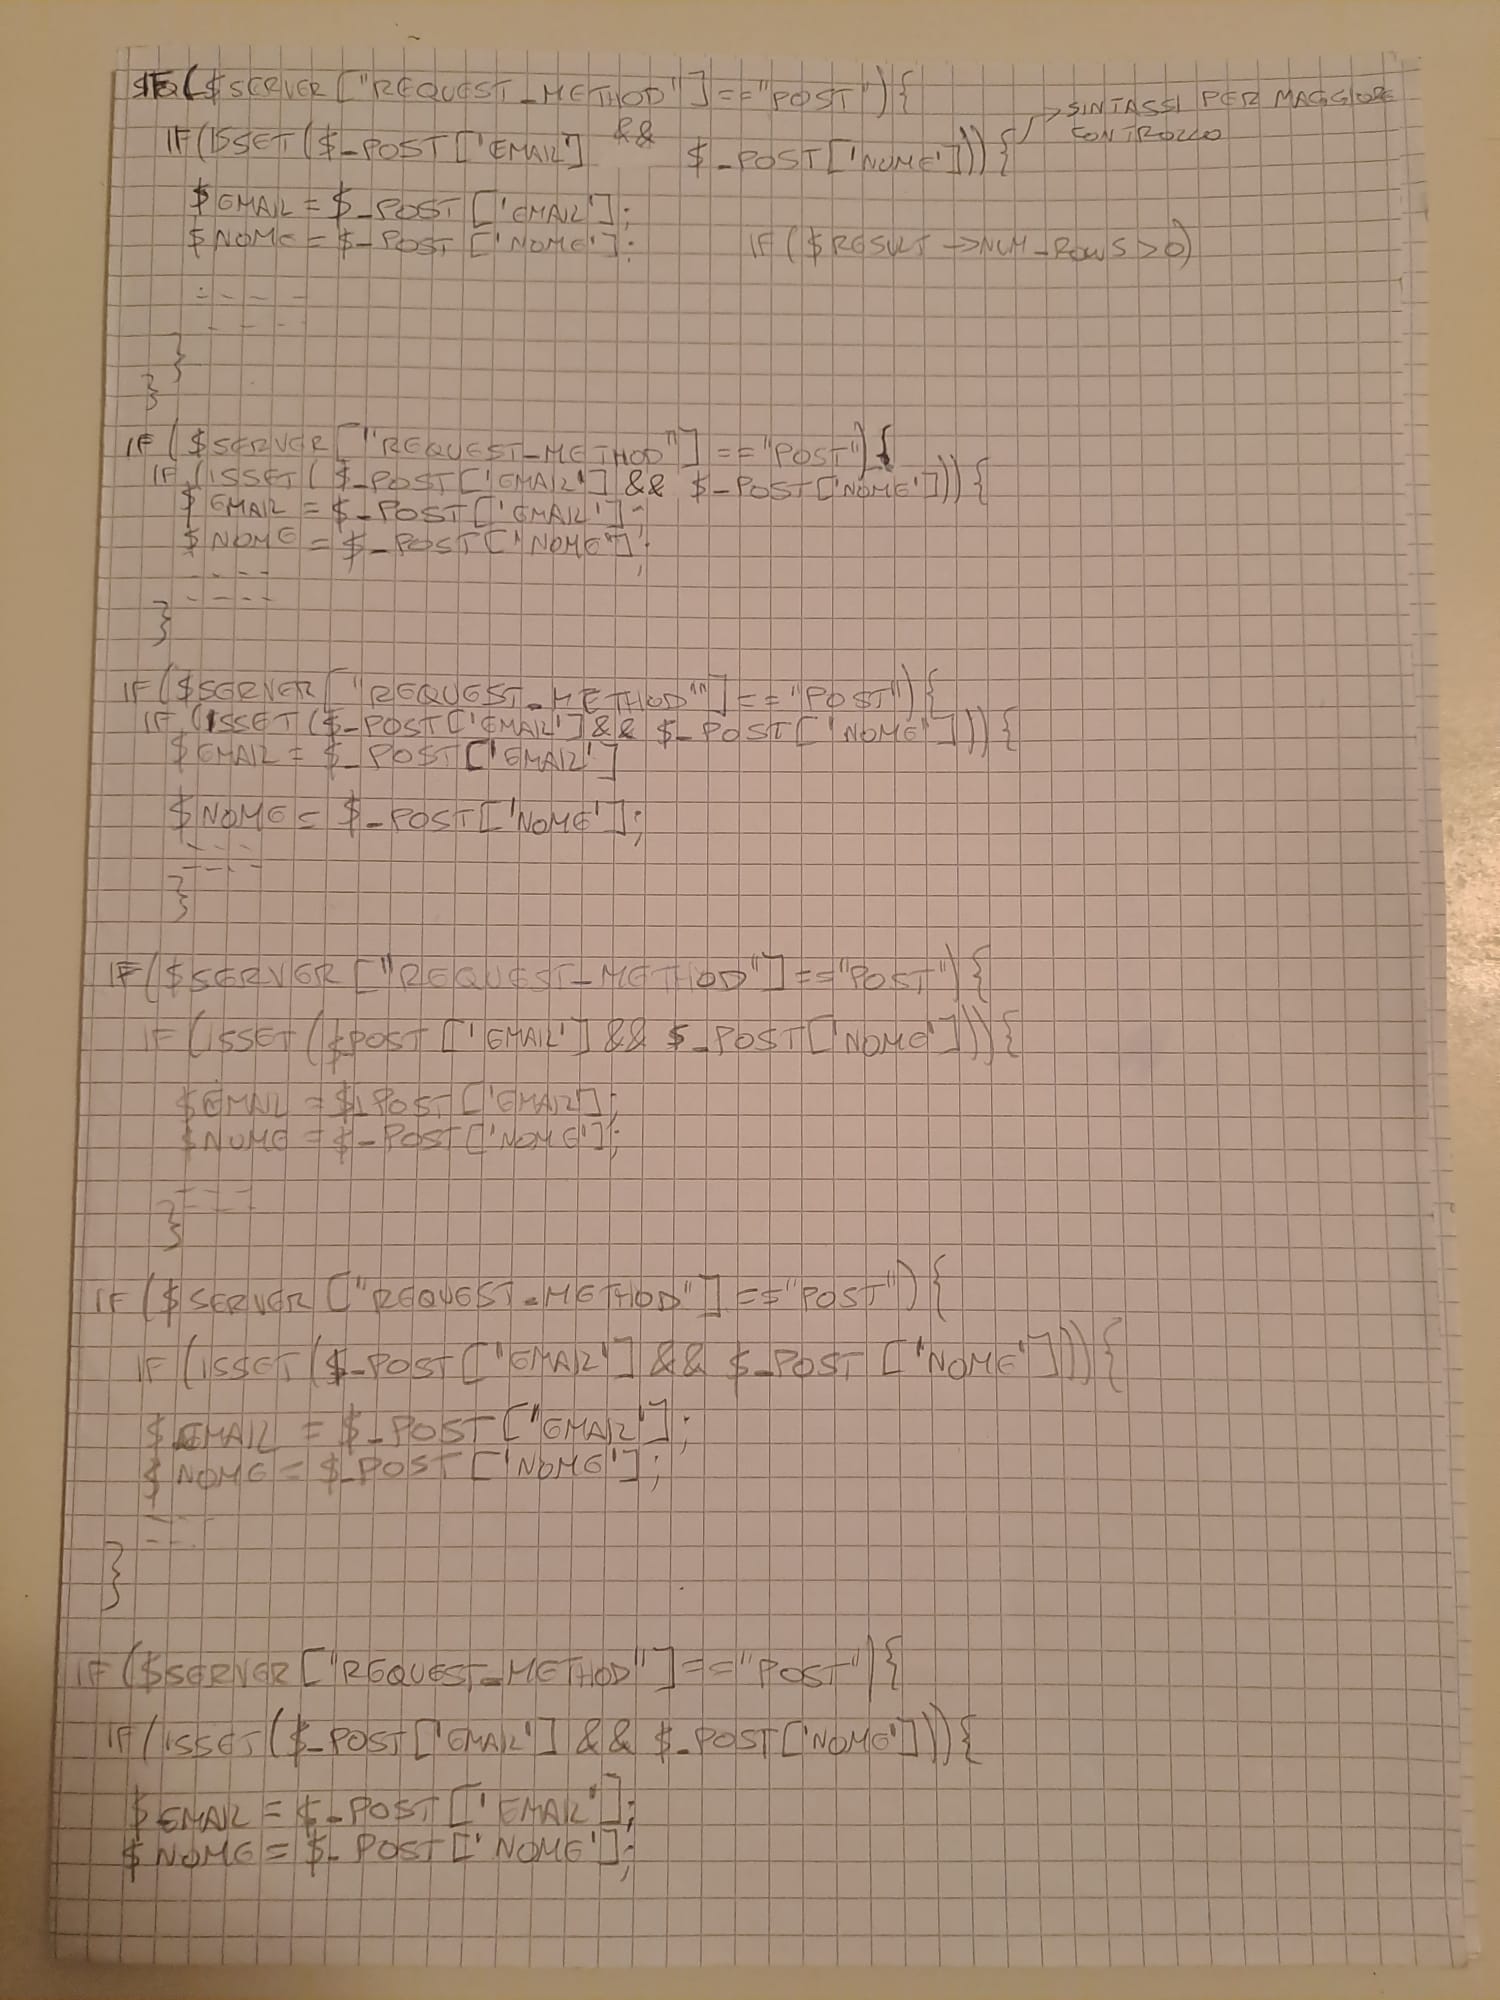 IF ($SERVER ["REQUEST_METHOD"] == "POST"){
SINTASSI PER MAGGIORE
CONTROLLO
IF (ISSET ($_POST ['EMAIL'] && $_POST ['NOME'])){
$EMAIL = $_POST ['EMAIL'];
$NOME = $_POST ['NOME']; IF ($RESULT ->NUM_ROWS > 0)
- - - -
- - - -
}
}
IF ($SERVER ["REQUEST_METHOD"] == "POST"){
IF (ISSET ($_POST ['EMAIL'] && $_POST ['NOME'])){
$EMAIL = $_POST ['EMAIL'];
$NOME = $_POST ['NOME'];
- - - -
- - - -
}
IF ($SERVER ["REQUEST_METHOD"] == "POST"){
IF (ISSET ($_POST ['EMAIL'] && $_POST ['NOME'])){
$EMAIL = $_POST ['EMAIL']
$NOME = $_POST ['NOME'];
- - -
- - - -
}
IF ($SERVER ["REQUEST_METHOD"] == "POST"){
IF (ISSET ($POST ['EMAIL'] && $_POST ['NOME'])){
$EMAIL = $_POST ['EMAIL];
$NOME = $_POST ['NOME'];
- - -
- - -
}
IF ($SERVER ["REQUEST_METHOD"] == "POST"){
IF (ISSET ($_POST ["EMAIL'] && $_POST ['NOME'])){
$EMAIL = $_POST ["EMAIL'];
$NOME = $_POST ['NOME'];
- - -
- - -
}
IF ($SERVER ["REQUEST_METHOD"] == "POST"){
IF (ISSET ($_POST ['EMAIL'] && $_POST ['NOME'])){
$EMAIL = $_POST ['EMAIL'];
$NOME = $_POST ['NOME'];